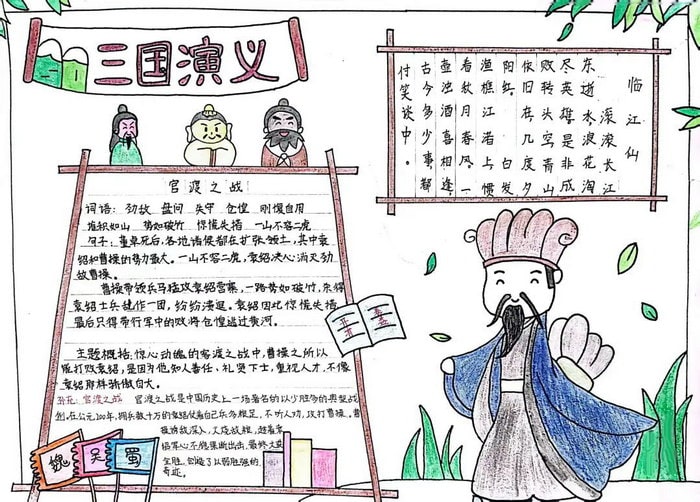 三国演义
官渡之战
词语：劲敌 盘问 失守 仓惶 刚愎自用
堆积如山 势如破竹 惊慌失措 一山不容二虎
句子：董卓死后，各地诸侯都在扩张领土，其中袁
绍和曹操的势力最大。一山不容二虎，袁绍决心消灭劲
敌曹操。
曹操带领兵马猛攻袁绍营寨，一路势如破竹，杀得
袁绍士兵乱作一团，纷纷溃退。袁绍因此惊慌失措
最后只得带行军中的败将仓惶逃过黄河。
主题概括：惊心动魄的官渡之战中，曹操之所以
能打败袁绍，是因为他知人善任、礼贤下士，重视人才，不像
袁绍那样骄傲自大。
官渡之战 官渡之战是中国历史上一场著名的以少胜多的典型战
例。在公元200年，拥兵数十万的袁绍仗着自己兵多粮足，不听人劝，攻打曹操。曹
操诱敌深入，火烧战粮，趁着袁
绍军心不稳果断出击，最终大立
全胜，创造了以弱胜强的
奇迹。
魏
吴
蜀
临江仙
滚滚长江
东逝水，浪花淘
尽英雄。是非成
败转头空。青山
依旧在，几度夕
阳红。 白发
渔樵江渚上，惯
看秋月春风。一
壶浊酒喜相逢，
古今多少事，都
付笑谈中。